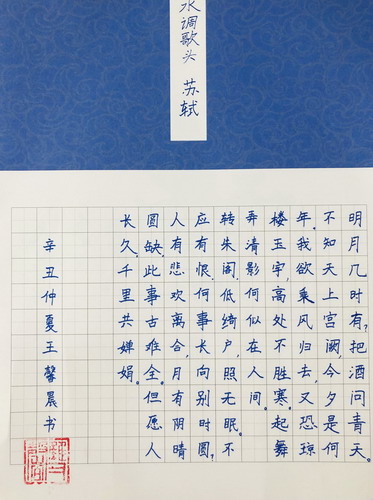 水调歌头 苏轼
明月几时有?把酒问青天。
不知天上宫阙,今夕是何
年。我欲乘风归去,又恐琼
楼玉宇,高处不胜寒。起舞
弄清影,何似在人间。
转朱阁,低绮户,照无眠。不
应有恨,何事长向别时圆?
人有悲欢离合,月有阴晴
圆缺,此事古难全。但愿人
长久,千里共婵娟。
辛丑仲夏王馨晨书